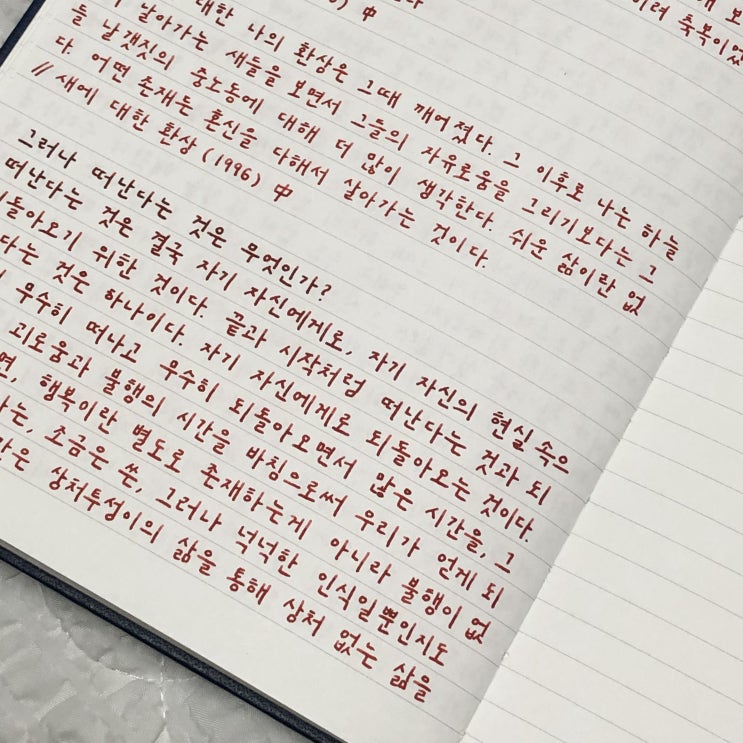 려 축복이었
中
대한 나의 환상은 그때 깨어졌다. 그 이후로 나는 하늘
날아가는 새들을 보면서 그들의 자유로움을 그리기보다는 그
들 날갯짓의 중노동에 대해 더 많이 생각한다. 쉬운 삶이란 없
다. 어떤 존재든 혼신을 다해서 살아가는 것이다.
// 새에 대한 환상 (1996) 中
그러나 떠난다는 것은 무엇인가?
떠난다는 것은 결국 자기 자신에게로, 자기 자신의 현실 속으
되돌아오기 위한 것이다. 끝과 시작처럼 떠난다는 것과 되
다는 것은 하나이다. 자기 자신에게로 되돌아오는 것이다.
무수히 떠나고 무수히 되돌아오면서 많은 시간을, 그
괴로움과 불행의 시간을 바침으로써 우리가 얻게 되
면, 행복이란 별도로 존재하는게 아니라 불행이 없
는, 조금은 쓴, 그러나 넉넉한 인식일뿐인지도
상처투성이의 삶을 통해 상처 없는 삶을